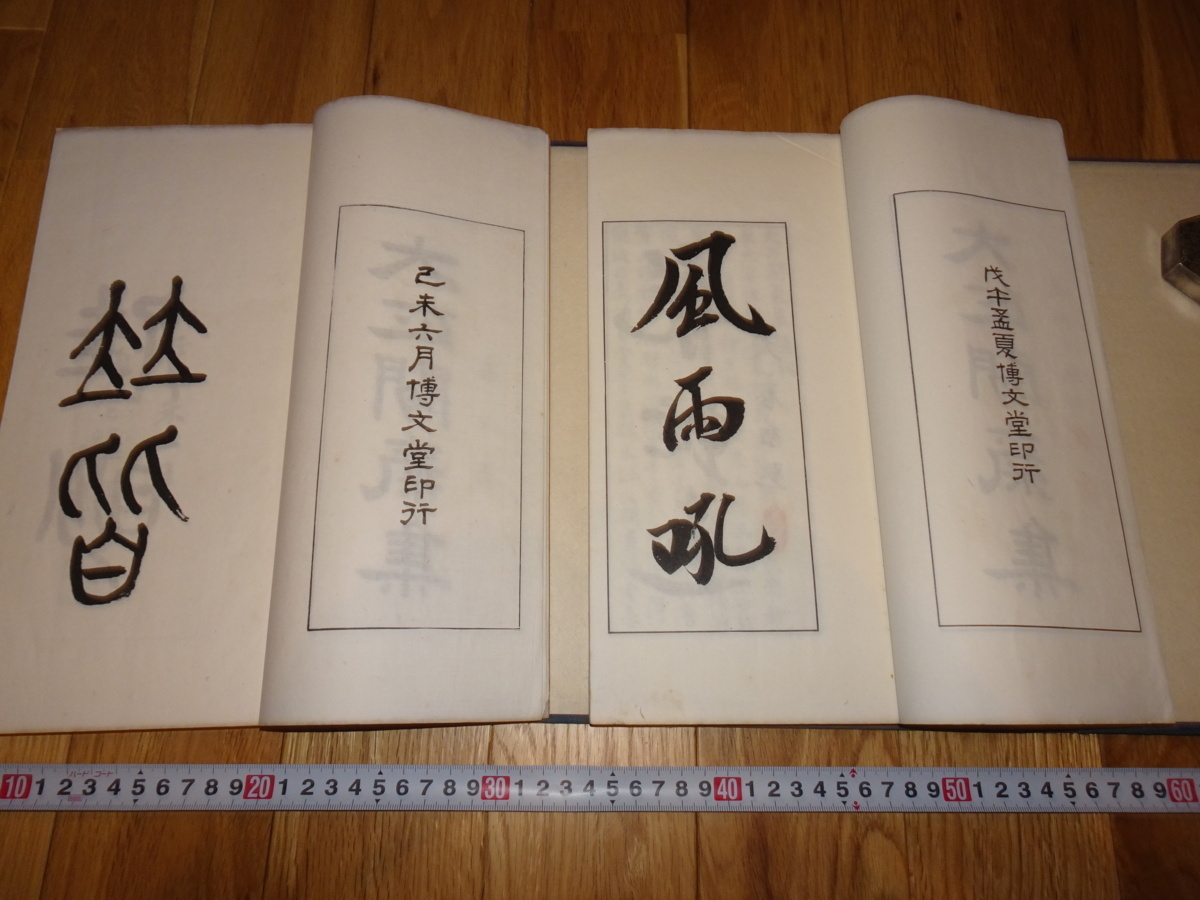 戊午孟夏博文堂印行
風雨吼
己未六月博文堂印行
竝皆
10 1 2 3 4 5 6 7 8 9 20 1 2 3 4 5 6 7 8 9 30 1 2 3 4 5 6 7 8 9 40 1 2 3 4 5 6 7 8 9 50 1 2 3 4 5 6 7 8 9 60